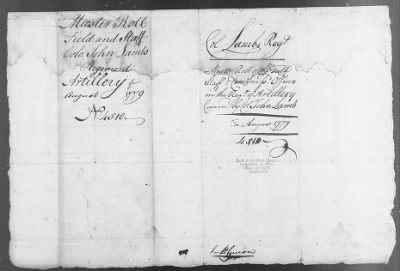 Muster Roll
Field and Staff
Colo. John Lambs
Regiment
Artillery for
August 1779
No. 4510
Col. Lambs Regt
Muster Roll of Field
Staff &
in the Regt. of Artillery
Comm. by Col. John Lamb
for August 1779
4510